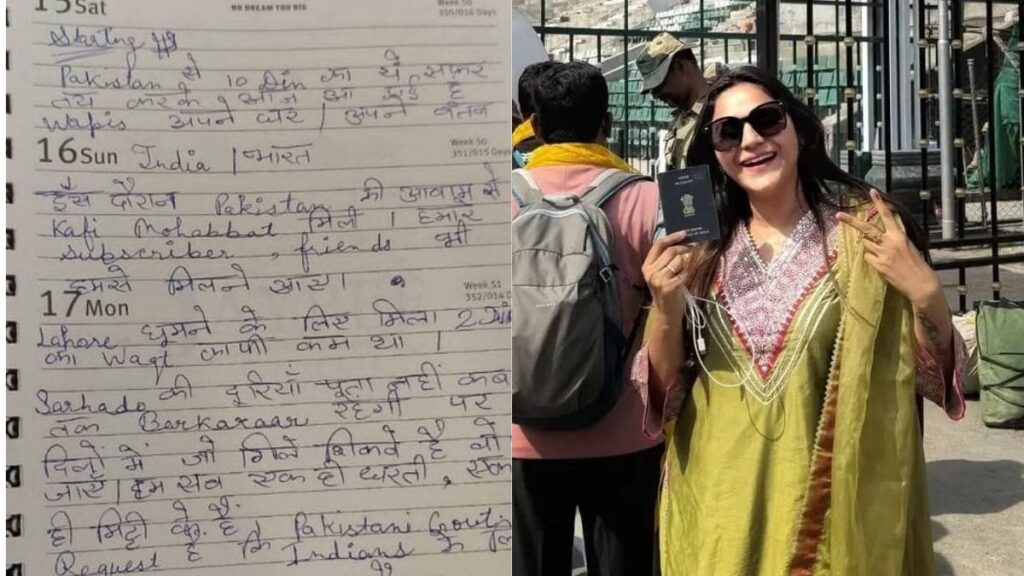 15 Sat
NO DREAM TOO BIG
Week 50
350/016 Days
Starting
Pakistan से 10 Din का ये सफर
तय करके आज आ गई है
Wapis अपने घर | अपने वतन
16 Sun
India | भारत
Week 50
351/015 Days
इस दौरान Pakistan की आवाम से
Kafi Mohabbat मिली । हमारे
subscriber, friends भी
हमसे मिलने आए।
17 Mon
Week 51
352/014 D
Lahore घूमने के लिए मिला 2
का Waqt काफी कम था |
Sarhado की दूरियाँ पता नहीं कब
तक Barkaraar रहेगी पर
दिलों में जो गिले शिकवे है वो
जाए। हम सब एक ही धरती, एक
ही मिट्टी के है
Request है कि Pakistani Govt
Indians के लि